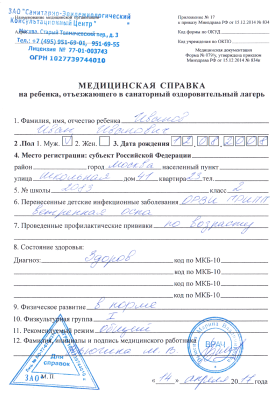 Наименование медицинской организации
Приложение № 17
ЗАО "Санитарно-Эпидемиологический
Консультационный Центр"
Адрес Москва, Старый Толмачевский пер., д. 3
Тел.: +7 (495) 951-69-01, 951-69-55
Лицензия № 77-01-003743
ОГРН 1027739744010
к приказу Минздрава РФ от 15.12 2014 № 834н
Код формы по ОКУД
Код учреждения по ОКПО
Медицинская документация
Форма № 079/у, утверждена приказом
Минздрава РФ от 15.12 2014 № 834н
МЕДИЦИНСКАЯ СПРАВКА
на ребенка, отъезжающего в санаторный оздоровительный лагерь
1. Фамилия, имя, отчество ребенка Иванов
Иван Иванович
2 .Пол 1. Муж. V 2. Жен. 3. Дата рождения
4. Место регистрации: субъект Российской Федерации
район город Москва населенный пункт
улица Школьная дом 41 квартира 23 тел.
5. № школы 2013 класс 2
6. Перенесенные детские инфекционные заболевания ОРВИ, грипп
ветренная оспа
7. Проведенные профилактические прививки по возрасту
8. Состояние здоровья:
Диагноз: Здоров код по МКБ-10
код по МКБ-10
код по МКБ-10
код по МКБ-10
9. Физическое развитие в норме
10. Физкультурная группа I
11. Рекомендуемый режим общий
12. Фамилия, инициалы и подпись медицинского работника
М. В.
ВРАЧ
Для
справок
ЗАО М. П.
« 14 » апреля года